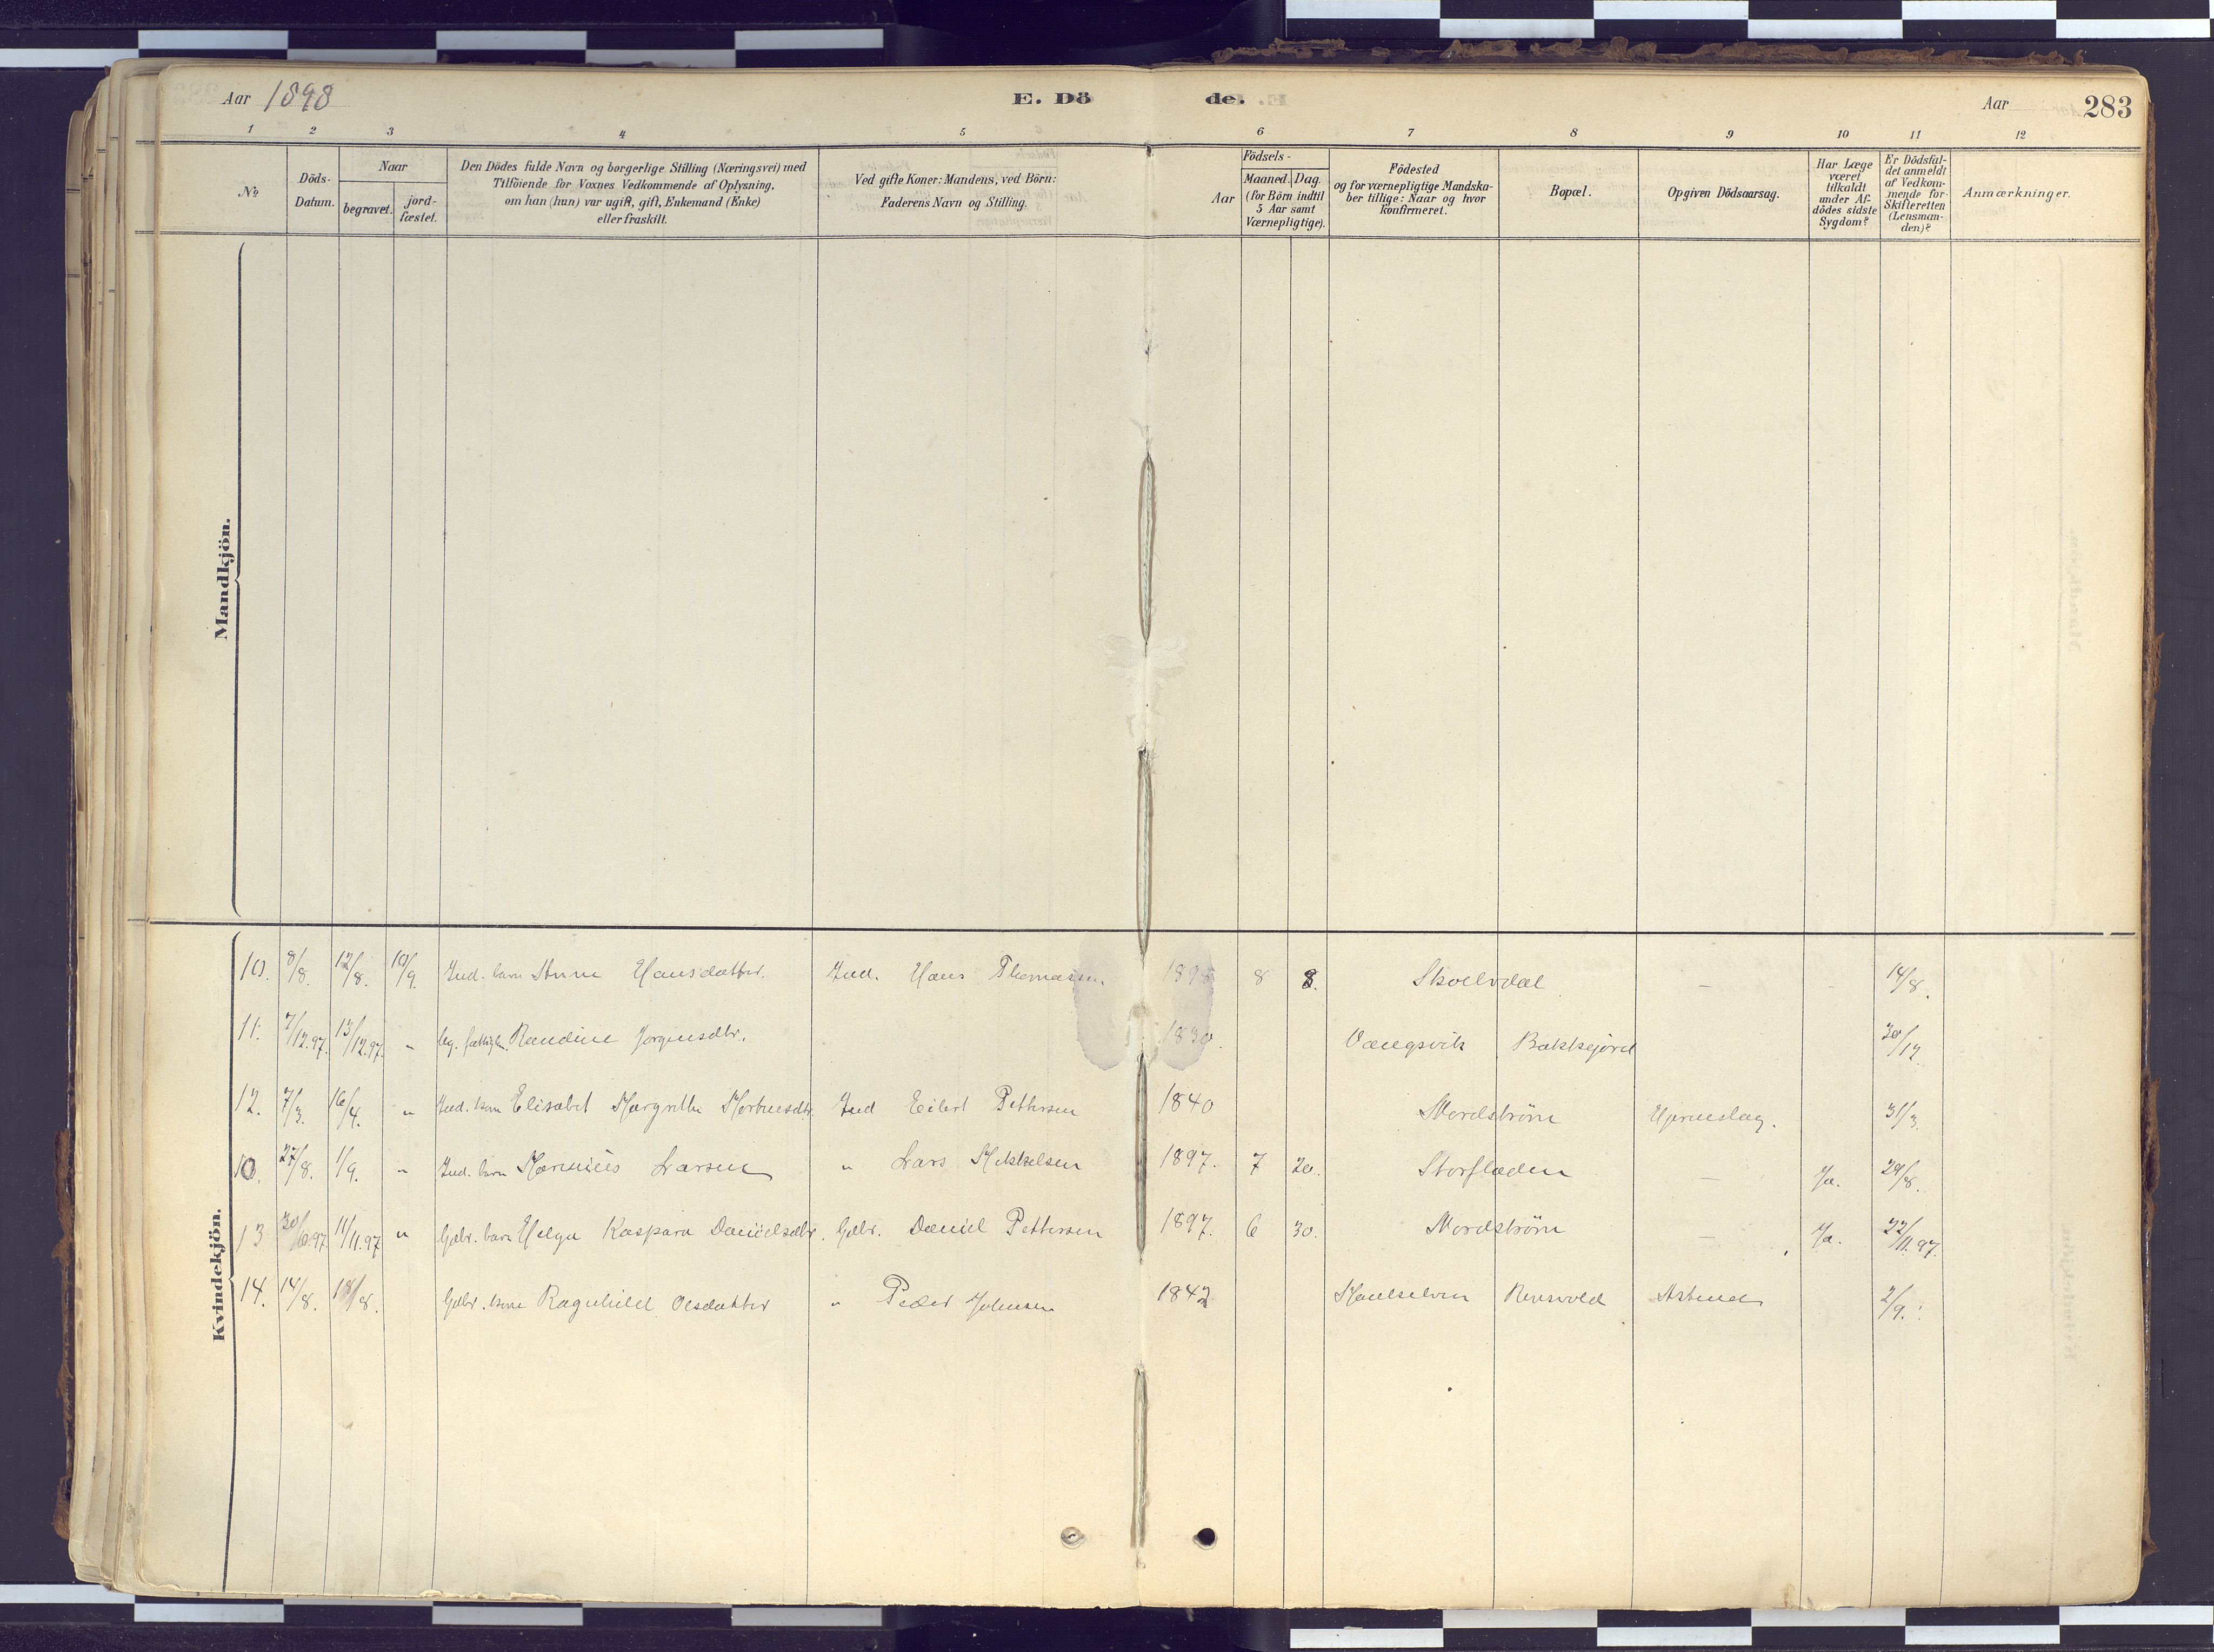 Aar 1898 E. Dö de. Aar 283
1 2 3 4 5 6 7 8 9 10 11 12
No
Döds-
Datum.
Naar
begravet.
jord-
fæstet.
Den Dödes fulde Navn og borgerlige Stilling (Næringsvei) med
Tilföiende for Voxnes Vedkommende af Oplysning,
om han (hun) var ugift, gift, Enkemand (Enke)
eller fraskilt.
Ved gifte Koner: Mandens, ved Börn:
Faderens Navn og Stilling.
Födsels-
Aar
Maaned. Dag.
(for Börn indtil
5 Aar samt
Værnepligtige).
Födested
og for værnepligtige Mandska-
ber tillige: Naar og hvor
konfirmeret.
Bopæl.
Opgiven Dödsaarsag.
Har Læge
været
tilkaldt
under Af-
dödes sidste
Sygdom?
Er Dödsfal-
det anmeldt
af Vedkom-
mende for
Skifteretten
(Lensman-
den)?
Anmærkninger.
Mandkjön.
Kvindekjön.
10. 8/8. 12/8. 10/9. Ind. barn Anne Hansdatter. Ind. Hans Thomassen 1898 8 8. Skoelvdal – 14/8.
11. 7/12.97. 13/12.97. " Randine Jorgensdtr. 1830. Vangsvik Bakkejord 30/12.
12. 7/3. 16/4. " Ind. kone Elisabet Margrethe Mortensdtr. Ind Eilert Pettersen 1840 Nordstrøm 31/3.
10. 27/8. 1/9. " Ind. barn Larsen " Lars Mikkelsen 1897. 7 20. Storfladen – Ja. 29/8.
13 30/10.97 11/11.97 " Gdbr. barn Helga Kaspara Danielsdtr. Gdbr. Daniel Pettersen 1897. 6 30. Nordstrøm – Ja. 22/11.97.
14. 14/8. 18/8. Gdbr. kone Ragnhild Olsdatter " Peder Johnsen 1842 Maalselven 2/9.